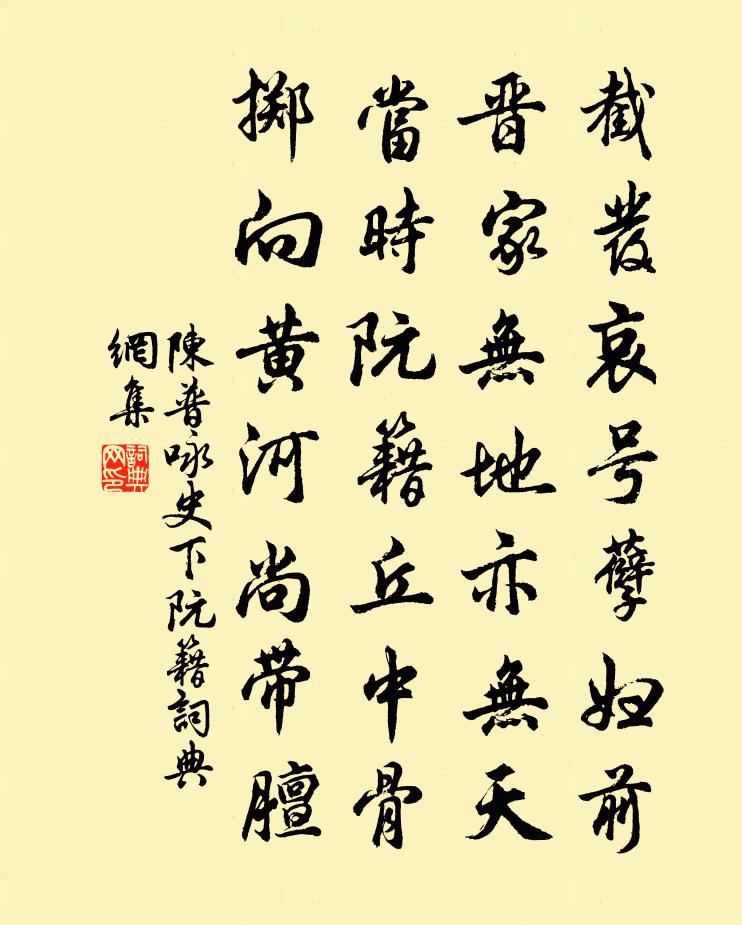 截發哀号孽妇前
晋家無地亦無天
當時阮籍丘中骨
擲向黄河尚带膻
陳普咏史下阮籍詞典
網集
詞典
网印